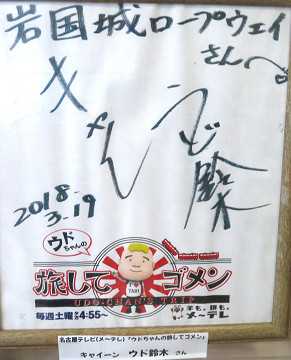 岩国城ロープウェイ
さんへ
キャイ〜ん
うど鈴木
2018.
3.19
ウドちゃんの
旅してゴメン
UDO-CHAN'S TRIP
毎週土曜夕4:55〜
メ〜テレ
名古屋テレビ(メ〜テレ)「ウドちゃんの旅してゴメン」
キャイ〜ン ウド鈴木 さん